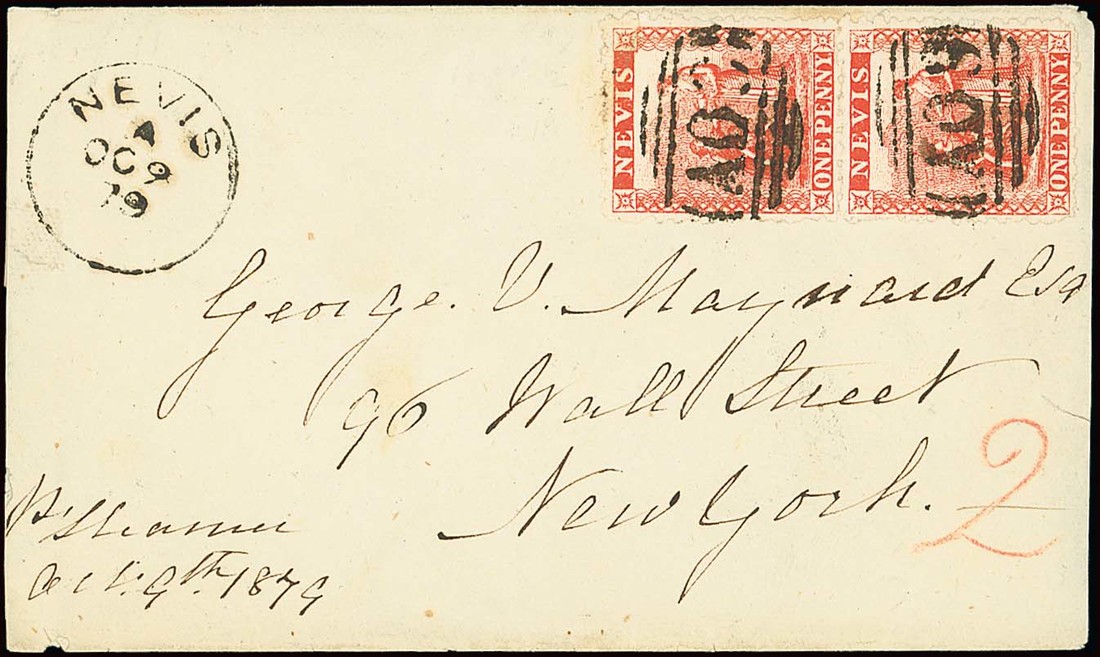 NEVIS
A
OC 9
79
NEVIS
ONE PENNY
A09
NEVIS
ONE PENNY
A09
George. V. Maynard Esq
96 Wall Street
New York.
2
pr Steamer
Oct: 9th. 1879